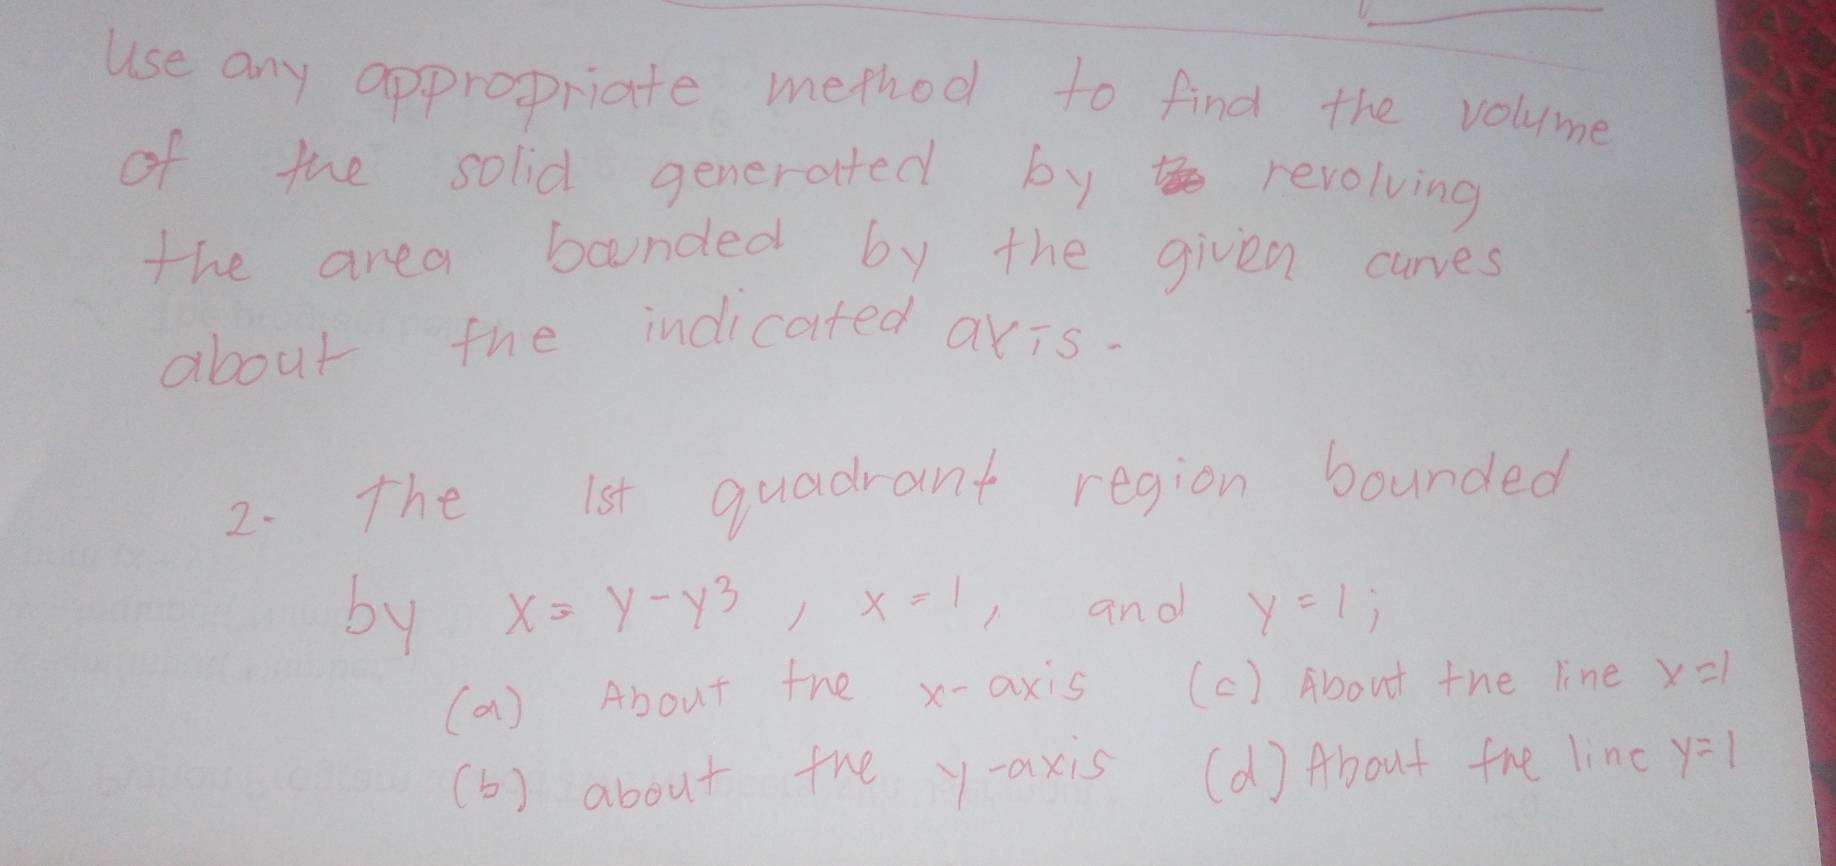 Use any appropriate method to find the volume
of the solid generated by revolving
the area bounded by the given curves
about the indicated axis.
2. The 1st quadrant region bounded
by x = y - y³, x = 1, and y = 1;
(a) About the x-axis (c) About the line x=1
(b) about the y-axis (d) About the line y=1